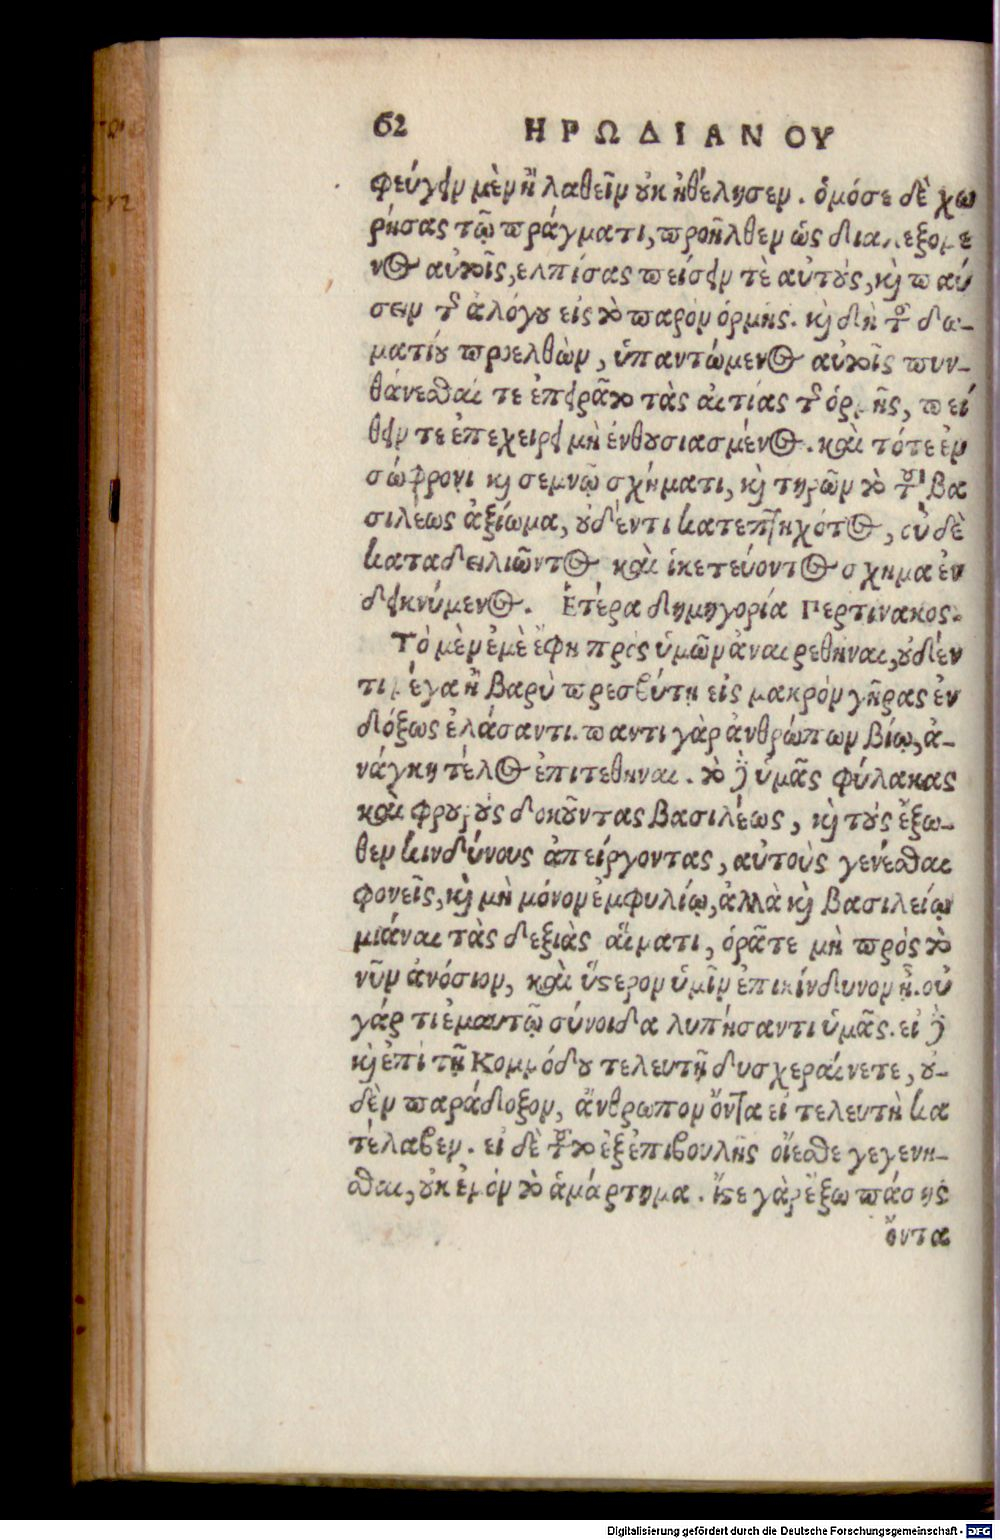 62 ΗΡΩΔΙΑΝΟΥ
φεύγειν μὲν ἢ λαθεῖν οὐκ ἠθέλησεν. ὁμόσε δὲ χω
ρήσας τῷ πράγματι, προῆλθεν ὡς διαλεξομε
νος αὐτοῖς, ελπίσας πείσειν τὲ αὐτοὺς, καὶ παύ
σειν τῆς ἀλόγου εἰς τὸ παρὸν ὁρμῆς. καὶ δὴ τοῦ δω-
ματίου προελθὼν, ὑπαντώμενος αὐτοῖς πυν-
θάνεσθαί τε ἐπειρᾶτο τὰς αἰτίας τῆς ὁρμῆς, πεί
θειν τε ἐπεχείρει μὴ ἐνθουσιασμένος. καὶ τότε ἐν
σώφρονι καὶ σεμνῷ σχήματι, καὶ τηρῶν τὸ τοῦ βα
σιλέως ἀξίωμα, οὐδέν τι κατεπτηχότος, οὐδὲ
καταδειλιῶντος καὶ ἱκετεύοντος σχημα ἐν
δεικνύμενος. Ἑτέρα δημηγορία Περτινακος.
Τὸ μὲν ἐμὲ ἔφη πρὸς ὑμῶν ἀναιρεθῆναι, οὐδέν
τι μέγα ἢ βαρὺ πρεσβύτῃ εἰς μακρὸν γῆρας ἐν
δόξως ἐλάσαντι. παντι γὰρ ἀνθρώπων βίῳ, ἀ-
νάγκη τέλος ἐπιτεθηναι. τὸ δὲ ὑμᾶς φύλακας
καὶ φρουροὺς δοκοῦντας βασιλέως, καὶ τοὺς ἔξω-
θεν κινδύνους ἀπείργοντας, αὐτοὺς γενέσθαι
φονεῖς, καὶ μὴ μόνον ἐμφυλίῳ, ἀλλὰ καὶ βασιλείῳ
μιάναι τὰς δεξιὰς αἵματι, ὁρᾶτε μὴ πρὸς τὸ
νῦν ἀνόσιον, καὶ ὕστερον ὑμῖν ἐπικίνδυνον ᾖ. οὐ
γάρ τι ἐμαυτῷ σύνοιδα λυπήσαντι ὑμᾶς. εἰ δὲ
καὶ ἐπὶ τῇ Κομμόδου τελευτῇ δυσχεραίνετε, οὐ-
δὲν παράδοξον, ἄνθρωπον ὄντα εἰ τελευτὴ κα
τέλαβεν. εἰ δὲ τοῦτο ἐξ ἐπιβουλῆς οἴεσθε γεγενη-
σθαι, οὐκ ἐμὸν τὸ ἁμάρτημα. ἴστε γὰρ ἔξω πάσης
ὄντα
Digitalisierung gefördert durch die Deutsche Forschungsgemeinschaft - DFG